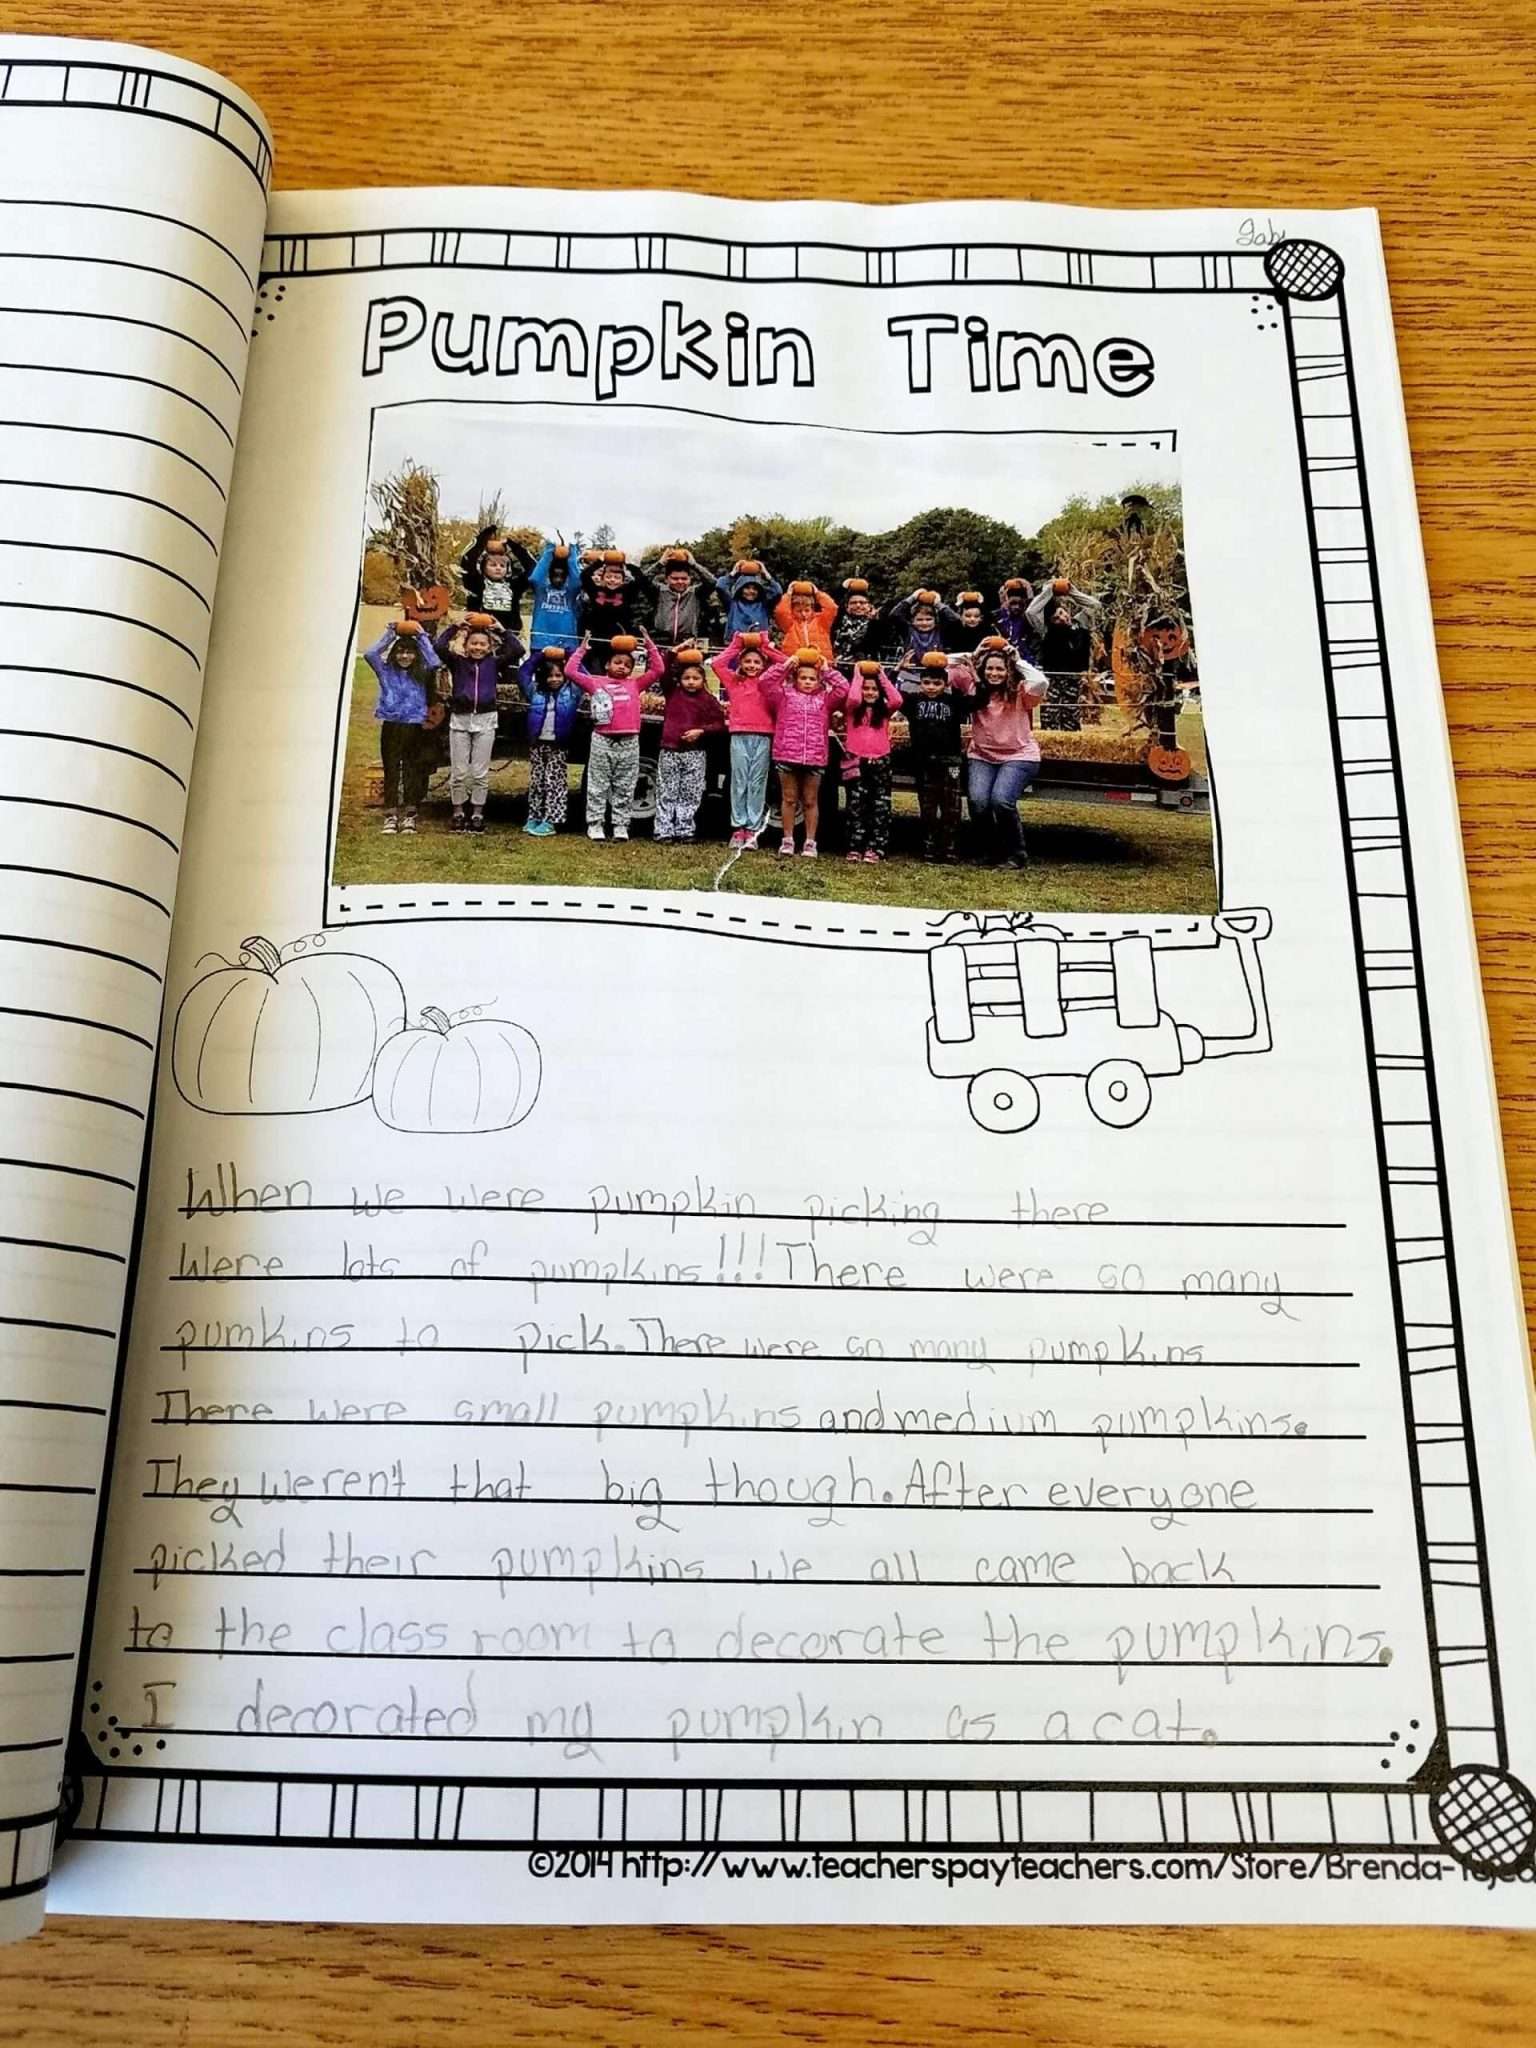 Gaby
Pumpkin Time
When we were pumpkin picking there
Were lots of pumpkins!!! There were so many
pumkins to pick. There were so many pumpkins
There were small pumpkins and medium pumpkins.
They weren't that big though. After everyone
picked their pumpkins we all came back
to the class room to decorate the pumpkins.
I decorated my pumpkin as a cat.
©2014 http://www.teacherspayteachers.com/Store/Brenda-